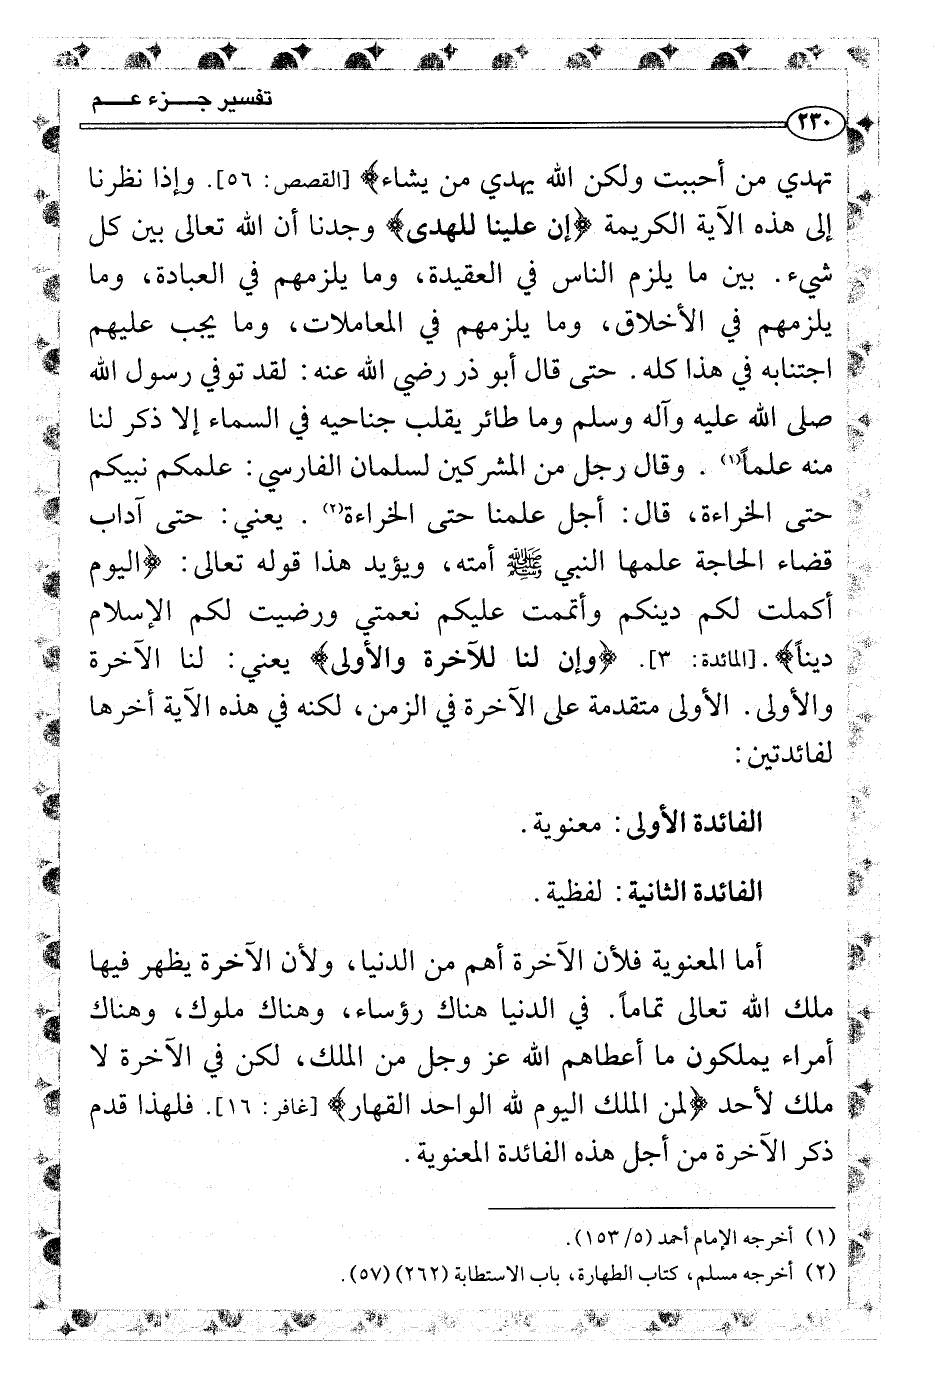 تفسير جزء عم
٢٣٠
تهدي من أحببت ولكن الله يهدي من يشاء﴾ [القصص: ٥٦]. وإذا نظرنا
إلى هذه الآية الكريمة ﴿إن علينا للهدى﴾ وجدنا أن الله تعالى بين كل
شيء. بين ما يلزم الناس في العقيدة، وما يلزمهم في العبادة، وما
يلزمهم في الأخلاق، وما يلزمهم في المعاملات، وما يجب عليهم
اجتنابه في هذا كله. حتى قال أبو ذر رضي الله عنه: لقد توفي رسول الله
صلى الله عليه وآله وسلم وما طائر يقلب جناحيه في السماء إلا ذكر لنا
منه علماً(١) . وقال رجل من المشركين لسلمان الفارسي: علمكم نبيكم
حتى الخراءة، قال: أجل علمنا حتى الخراءة(٢) . يعني: حتى آداب
قضاء الحاجة علمها النبي ﷺ أمته، ويؤيد هذا قوله تعالى: ﴿اليوم
أكملت لكم دينكم وأتممت عليكم نعمتي ورضيت لكم الإسلام
ديناً﴾.[المائدة: ٣]. ﴿وإن لنا للآخرة والأولى﴾ يعني: لنا الآخرة
والأولى. الأولى متقدمة على الآخرة في الزمن، لكنه في هذه الآية أخرها
لفائدتين:
الفائدة الأولى: معنوية.
الفائدة الثانية: لفظية.
أما المعنوية فلأن الآخرة أهم من الدنيا، ولأن الآخرة يظهر فيها
ملك الله تعالى تماماً. في الدنيا هناك رؤساء، وهناك ملوك، وهناك
أمراء يملكون ما أعطاهم الله عز وجل من الملك، لكن في الآخرة لا
ملك لأحد ﴿لمن الملك اليوم لله الواحد القهار﴾ [غافر: ١٦]. فلهذا قدم
ذكر الآخرة من أجل هذه الفائدة المعنوية.
(١) أخرجه الإمام أحمد (٥/ ١٥٣).
(٢) أخرجه مسلم، كتاب الطهارة، باب الاستطابة (٢٦٢) (٥٧).